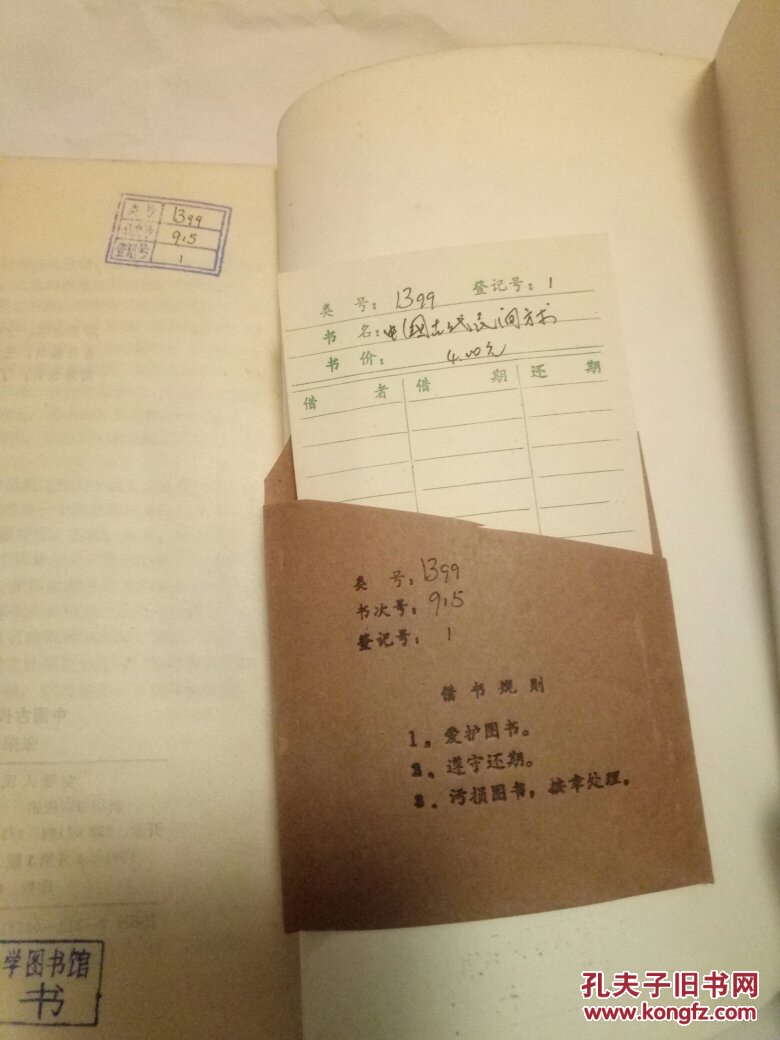 类号 1399
915
登记号 1
类 号：1399 登记号：1
书 名：中国古代民间方术
书 价：4.00元
借 者 借 期 还 期
类 号：1399
书次号：915
登记号：1
借 书 规 则
1、爱护图书。
2、遵守还期。
3、污损图书，按章处理。
学图书馆
书
孔夫子旧书网
www.kongfz.com